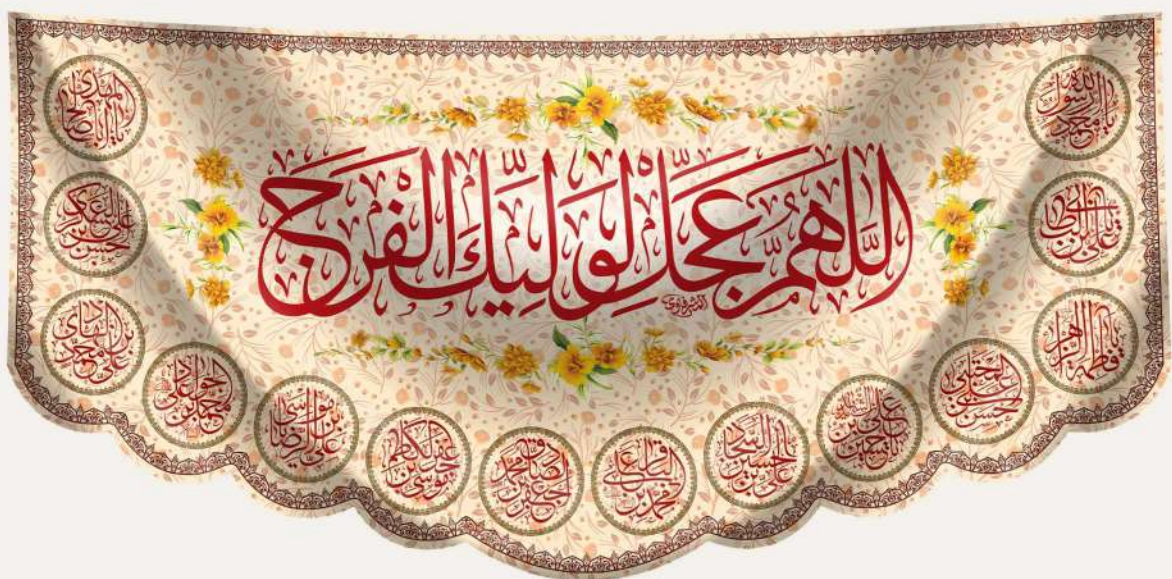 اللَّهُمَّ عَجِّلْ لِوَلِيِّكَ الْفَرَج
يا محمد رسول الله
يا علي بن ابي طالب
يا فاطمة الزهراء
يا حسن بن علي المجتبى
يا حسين بن علي الشهيد
يا علي بن الحسين السجاد
يا محمد بن علي الباقر
يا جعفر بن محمد الصادق
يا موسى بن جعفر الكاظم
يا علي بن موسى الرضا
يا محمد بن علي الجواد
يا علي بن محمد الهادي
يا حسن بن علي العسكري
يا أبا صالح المهدي